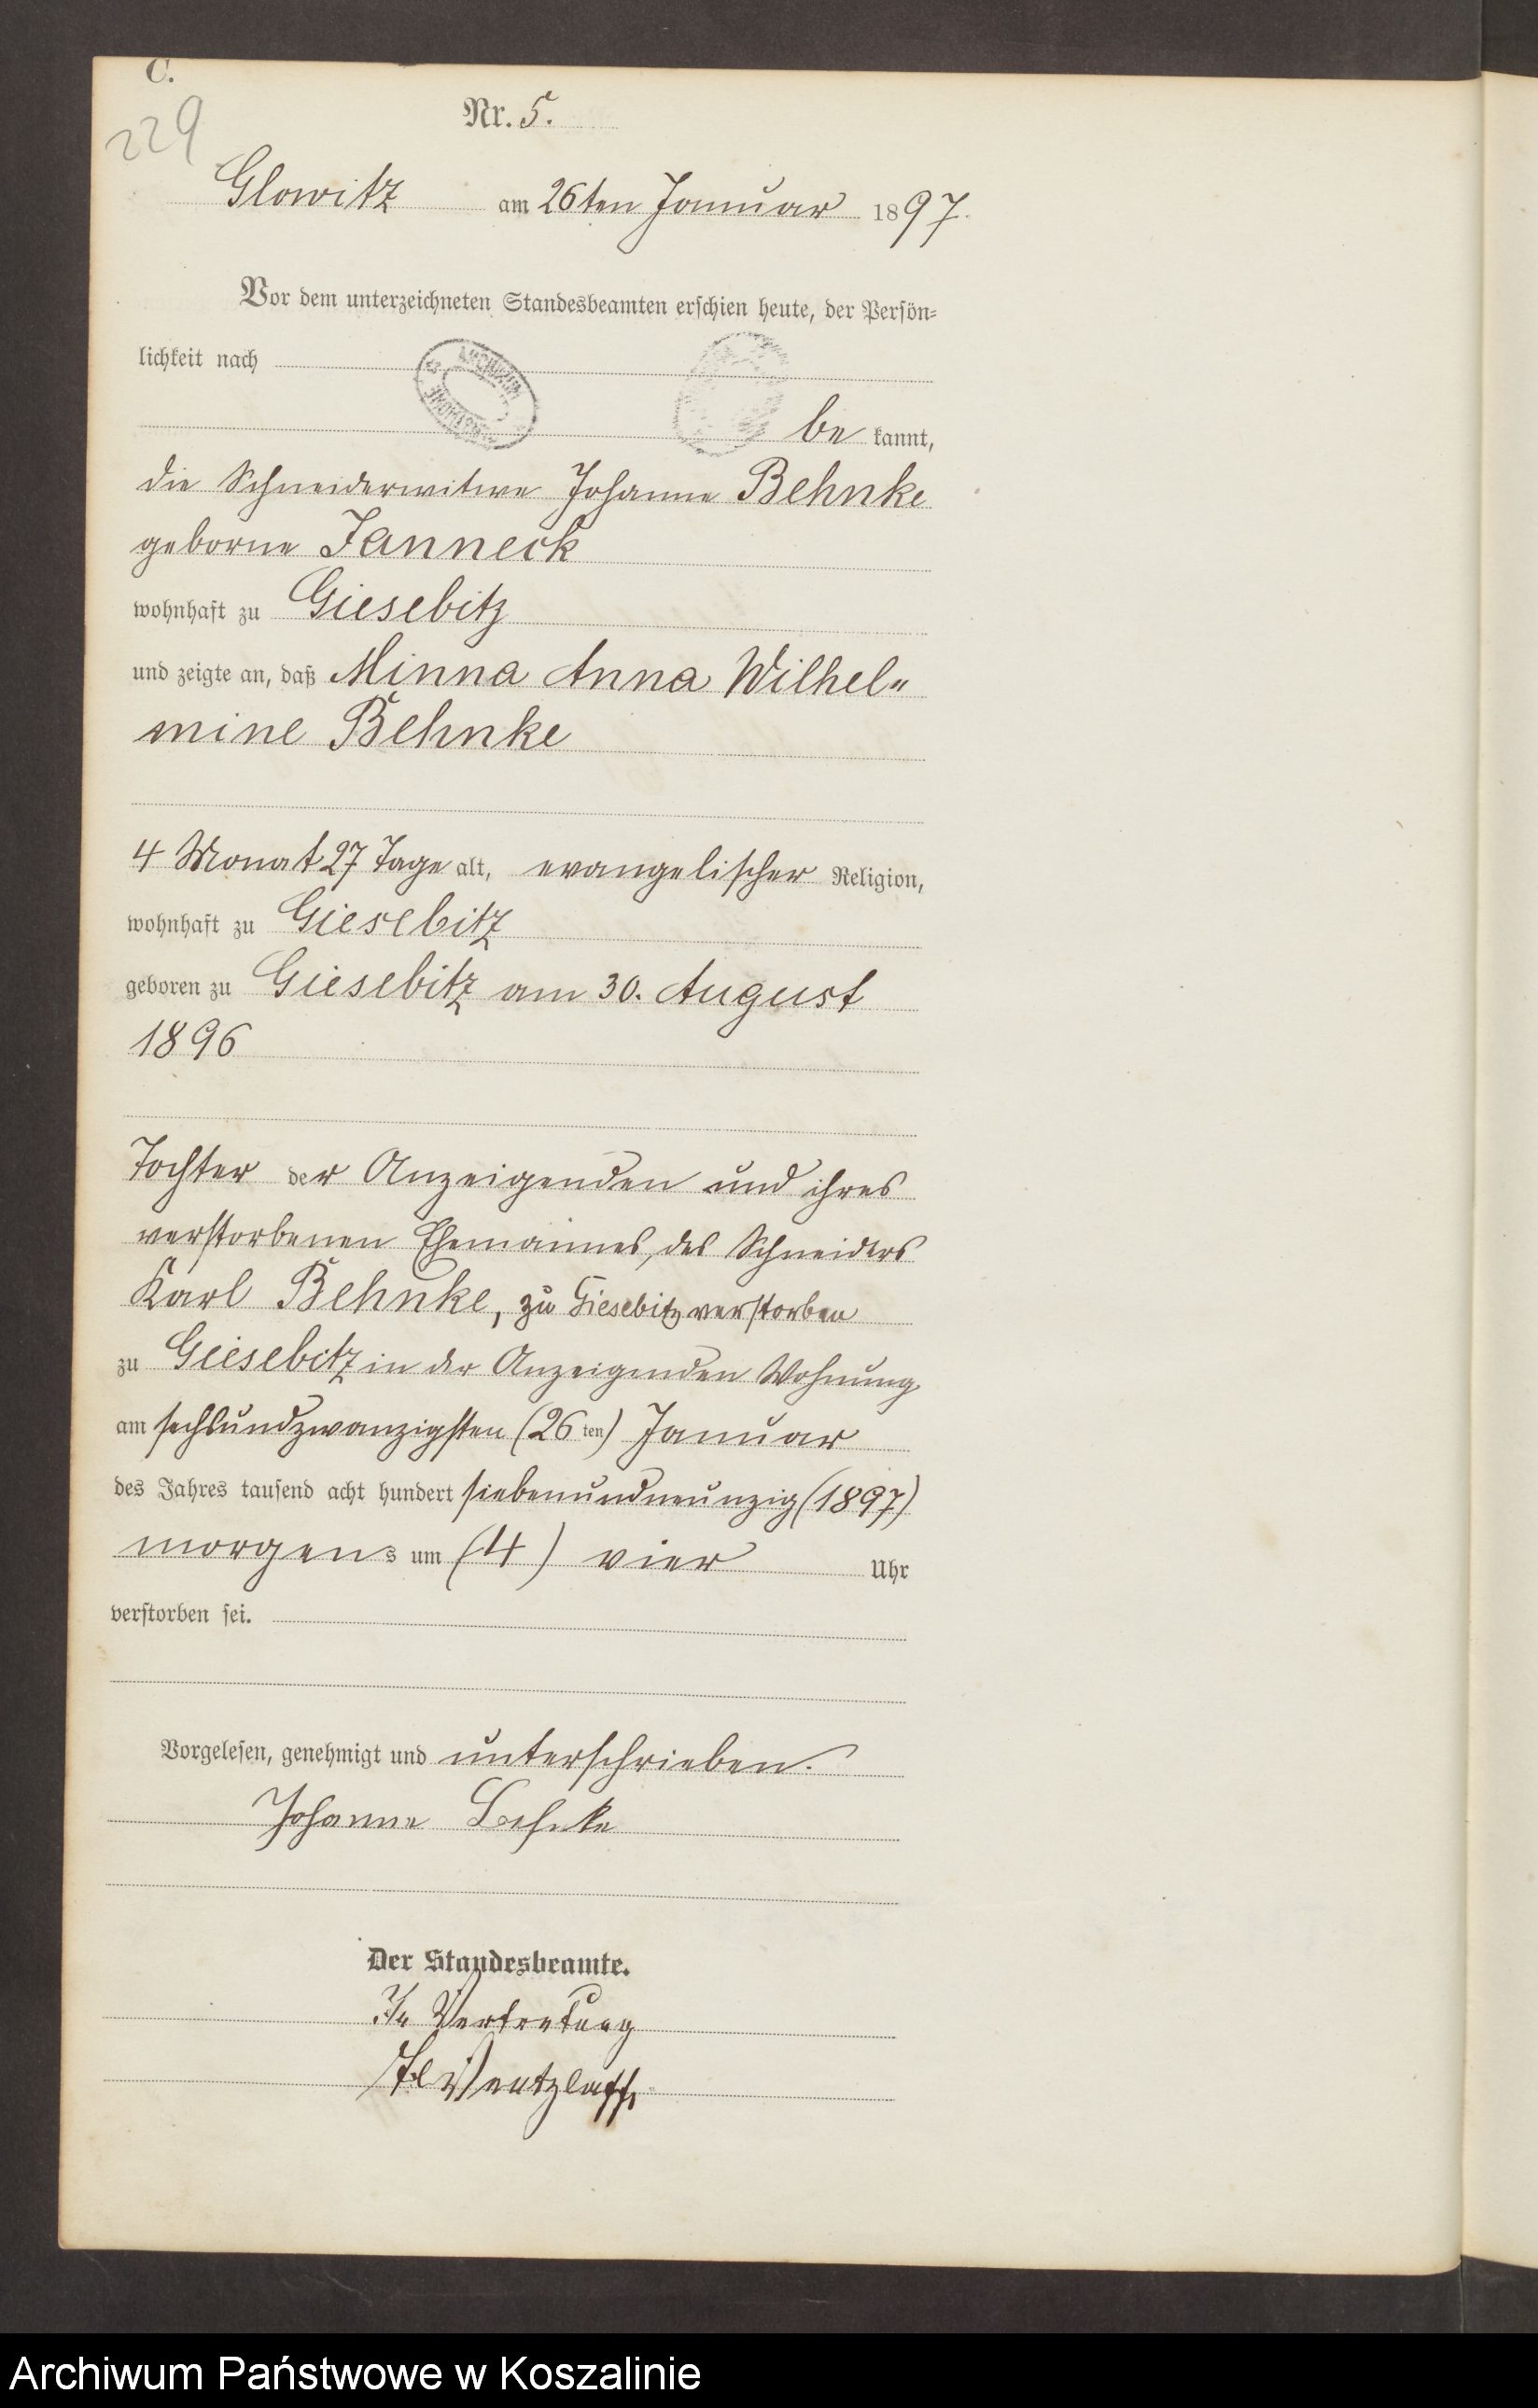 C.
229
Nr. 5.
Glowitz am 26ten Januar 1897.
Vor dem unterzeichneten Standesbeamten erschien heute, der Persön-
lichkeit nach
be kannt,
die Schneiderwitwe Johanne Behnke
geborne Janneck
wohnhaft zu Giesebitz
und zeigte an, daß Minna Anna Wilhel-
mine Behnke
4 Monat 27 Tage alt, evangelischer Religion,
wohnhaft zu Giesebitz
geboren zu Giesebitz am 30. August
1896
Tochter der Anzeigenden und ihres
verstorbenen Ehemannes, des Schneiders
Karl Behnke, zu Giesebitz verstorben
zu Giesebitz in der Anzeigenden Wohnung
am sechsundzwanzigsten (26 ten) Januar
des Jahres tausend acht hundert siebenundneunzig (1897)
morgens um (4) vier Uhr
verstorben sei.
Vorgelesen, genehmigt und unterschrieben.
Johanne Behnke
Der Standesbeamte.
In Vertretung
Wentzlaff
Archiwum Państwowe w Koszalinie